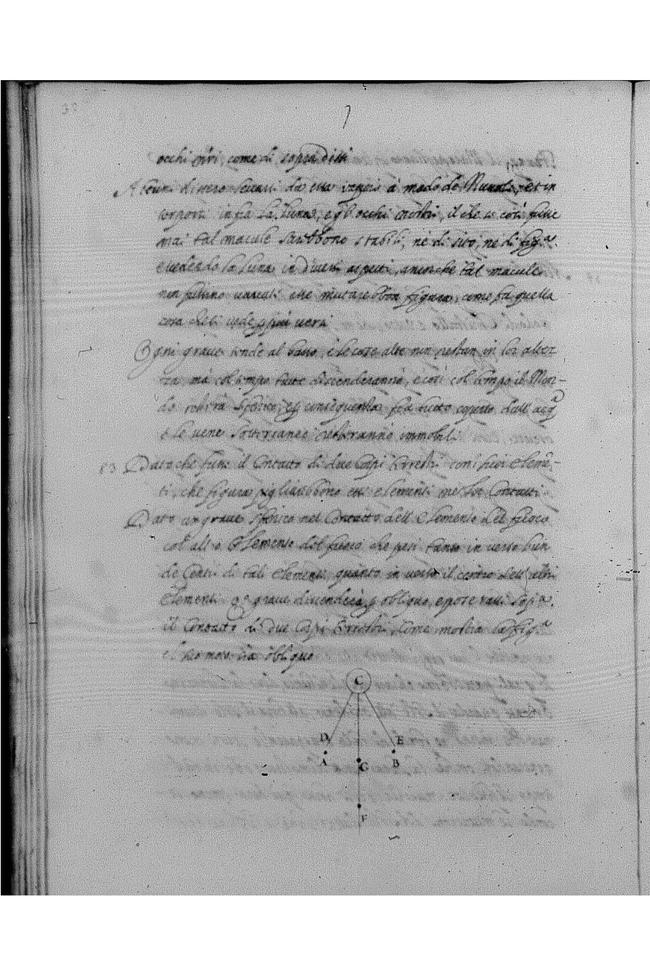 occhi nri, come di sopra dissi
Alcuni dissero levarsi da essa vapori a modo de Nuvoli, et in
torporsi infra la luna, e gl'occhi nostri, il che se così fusse
mai tal macule sarebbono stabili, ne di sito, ne di fig.ª
e vedendo la luna in diversi aspetti, ancor che tal macule
non fussino variati esse mutarebbon figura, come fa quella
cosa che si vede p più versi
Ogni grave tende al basso, e le cose alte non restan in lor altez-
za, ma col tempo tutte discenderanno, e così col tempo il Mon-
do resterà sferico, et conseguentia fia tutto coperto dall'acq.ª
e le vene sotterranee resteranno immobili
83 Dato che fusse il Contatto di due Corpi terrestri con i suoi eleme-
ti, che figura pigliarebbono essi elementi ne lor Contatti
Dato un grave sferico nel Contatto dell'elemento del fuoco
col'altro elemento del fuoco che pesi tanto in verso
de Centri di tali elementi, quanto in verso il centro dell'altri
elementi q.º grave discenderà p obliquo,
il Contatto di due Corpi terrestri, Come mostra la fig.ª
e'l suo moto fia obliquo
C
D E
A G B
F